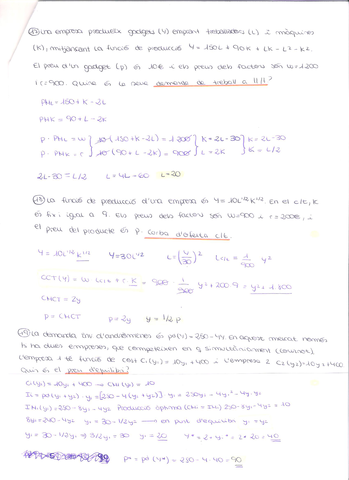 Una empresa produeix gadgets (Y) emprant treballadors (L) i màquines
(K), mitjançant la funció de producció Y = 150L + 90K + LK - L² - K².
El preu d'un gadget (p) és 10€ i els preus dels factors són w=1200
i r=900. Quina és la seva demanda de treball a ll/t?
PML = 150 + K - 2L
PMK = 90 + L - 2K
p · PML = w 10 (150 + K - 2L) = 1200 K = 2L - 30 K = 2L - 30
p · PMK = r 10 (90 + L - 2K) = 900 L = 2K K = L/2
2L - 30 = L/2 L = 20
La funció de producció d'una empresa és Y = 10L^1/2 K^1/2 En el c/t, K
és fix i igual a 9. Els preus dels factors són w=900 i r=200€, i
el preu del producte és p. Corba d'oferta c/t.
Y = 10L^1/2 K^1/2 Y = 30L^1/2 L = (Y/30)² L = 1/900 Y²
CCT(Y) = w · L + r · K = 900 · 1/900 Y² + 200 · 9 = Y² + 1800
CMCT = 2y
p = CMCT p = 2y y = 1/2 p
La demanda és pd(Y) = 250 - 4Y. En aquest mercat només
hi ha dues empreses, que competeixen en q simultàniament (Cournot).
L'empresa 1 té funció de cost C₁(y₁) = 10y₁ + 400 i l'empresa 2 C₂(y₂) = 10y₂ + 400
Quin és el preu d'equilibri?
C₁(y₁) = 10y₁ + 400 → CM₁(y₁) = 10
I₁ = pd(y₁+y₂) · y₁ = [250 - 4(y₁+y₂)] · y₁ = 250y₁ - 4y₁² - 4y₁y₂
IM₁(y₁) = 250 - 8y₁ - 4y₂ Producció òptima (CM₁ = IM₁) 250 - 8y₁ - 4y₂ = 10
8y₁ = 240 - 4y₂ y₁ = 30 - 1/2y₂ en punt d'equilibri y₁ = y₂
y₁ = 30 - 1/2y₁ → 3/2y₁ = 30 y₁ = 20 Y* = 2 · y₁* = 2 · 20 = 40
p* = pd(Y*) = 250 - 4 · 40 = 90